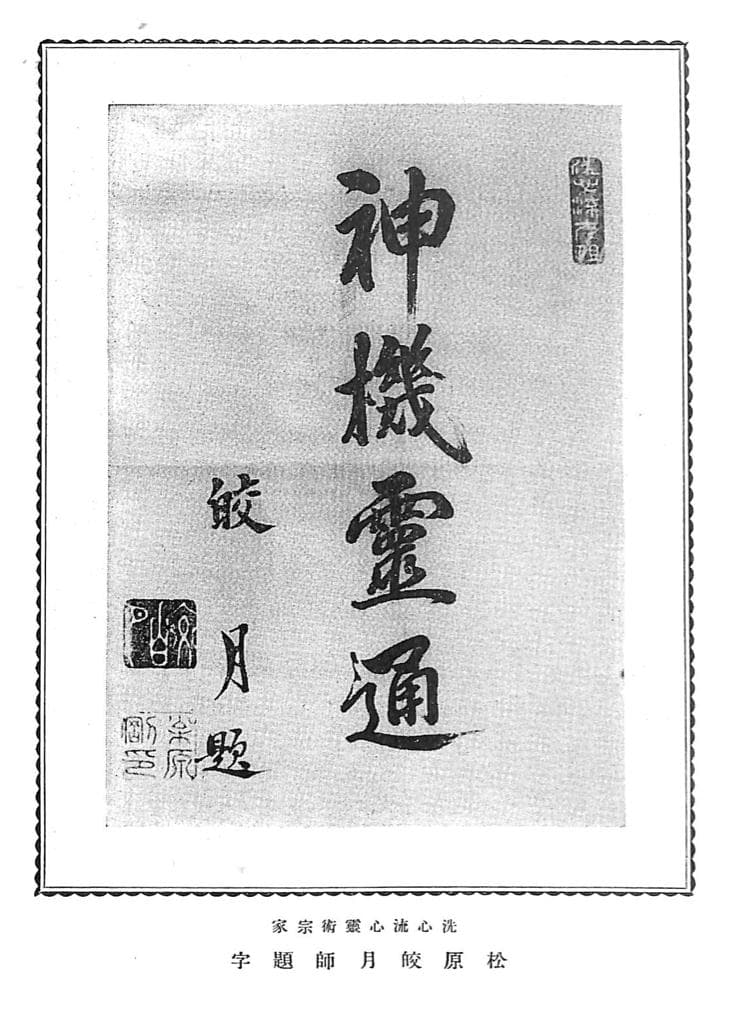 神機靈通
皎月題
洗心流心靈術宗家
松原皎月師題字